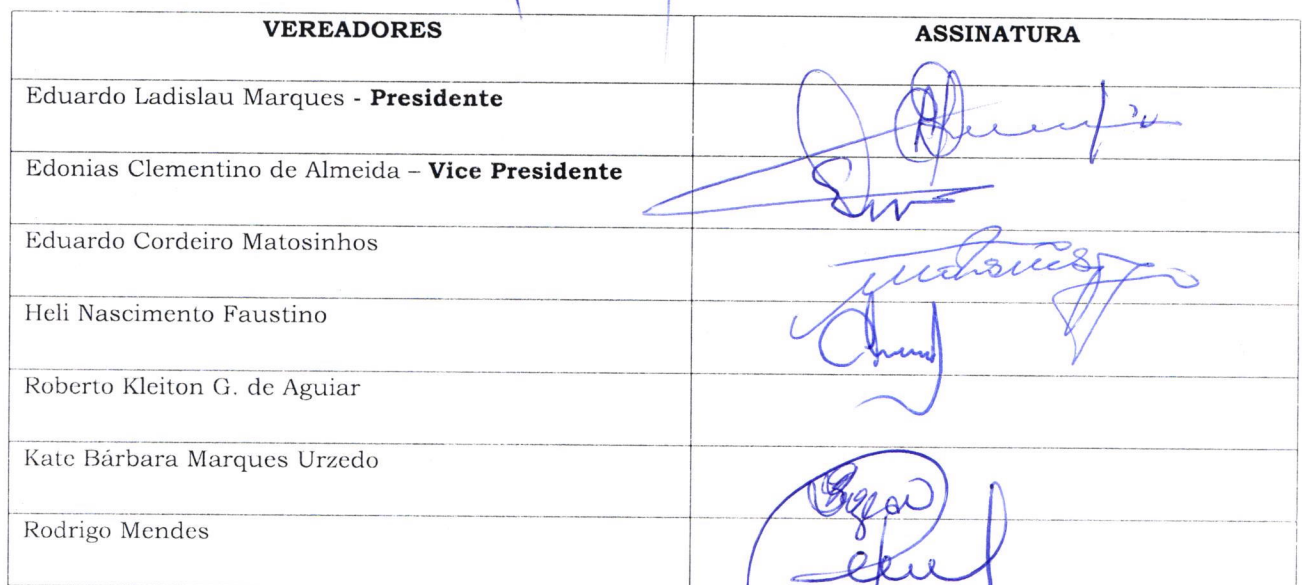 VEREADORES ASSINATURA
Eduardo Ladislau Marques - Presidente
Edonias Clementino de Almeida – Vice Presidente
Eduardo Cordeiro Matosinhos
Heli Nascimento Faustino
Roberto Kleiton G. de Aguiar
Kate Bárbara Marques Urzedo
Rodrigo Mendes